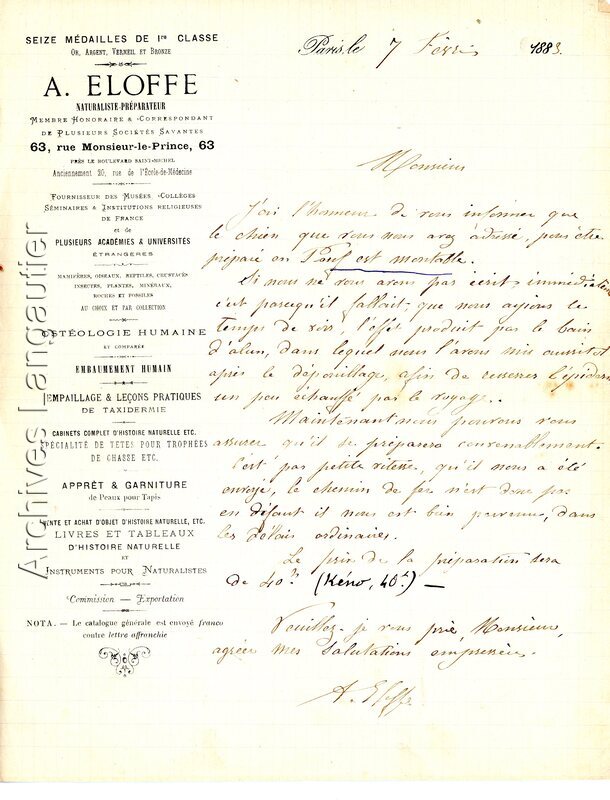 SEIZE MÉDAILLES DE 1re CLASSE
OR, ARGENT, VERMEIL ET BRONZE
A. ELOFFE
NATURALISTE-PRÉPARATEUR
MEMBRE HONORAIRE & CORRESPONDANT
DE PLUSIEURS SOCIÉTÉS SAVANTES
63, rue Monsieur-le-Prince, 63
PRÈS LE BOULEVARD SAINT-MICHEL
Anciennement 20, rue de l'École-de-Médecine
FOURNISSEUR DES MUSÉES, COLLÈGES
SÉMINAIRES & INSTITUTIONS RELIGIEUSES
DE FRANCE
et de
PLUSIEURS ACADÉMIES & UNIVERSITÉS
ÉTRANGÈRES
MAMIFÈRES, OISEAUX, REPTILES, CRUSTACÉS
INSECTES, PLANTES, MINÉRAUX,
ROCHES ET FOSSILES
AU CHOIX ET PAR COLLECTION
OSTÉOLOGIE HUMAINE
ET COMPARÉE
EMBAUMEMENT HUMAIN
EMPAILLAGE & LEÇONS PRATIQUES
DE TAXIDERMIE
CABINETS COMPLET D'HISTOIRE NATURELLE ETC.
SPÉCIALITÉ DE TETES POUR TROPHÉES
DE CHASSE ETC.
APPRÊT & GARNITURE
de Peaux pour Tapis
VENTE ET ACHAT D'OBJET D'HISTOIRE NATURELLE, ETC.
LIVRES ET TABLEAUX
D'HISTOIRE NATURELLE
ET
INSTRUMENTS POUR NATURALISTES
Commission — Exportation
NOTA. — Le catalogue générale est envoyé franco
contre lettre affranchie
Archives Langautier
Paris, le 7 Févri 1883.
Monsieur
J'ai l'honneur de vous informer que
le chien que vous nous avez adressé, pour être
préparé en est montable.
Si nous ne vous avons pas écrit immédiatem
c'est parcequ'il fallait que nous ayions le
temps de voir, l'effet produit par le bain
d'alun, dans lequel nous l'avons mis aussitot
après le dépouillage, afin de resserrer l'épiderme
un peu échauffé par le voyage..
Maintenant nous pouvons vous
assurer qu'il se préparera convenablement.
C'est par petite vitesse, qu'il nous a été
envoyé, le chemin de fer n'est donc pas
en défaut il nous est bien parvenu, dans
les délais ordinaires.
Le prix de la préparation sera
de 40f. (Kéno, 40f.) —
Veuillez je vous prie, Monsieur,
agréer mes salutations empressées.
A. Eloffe